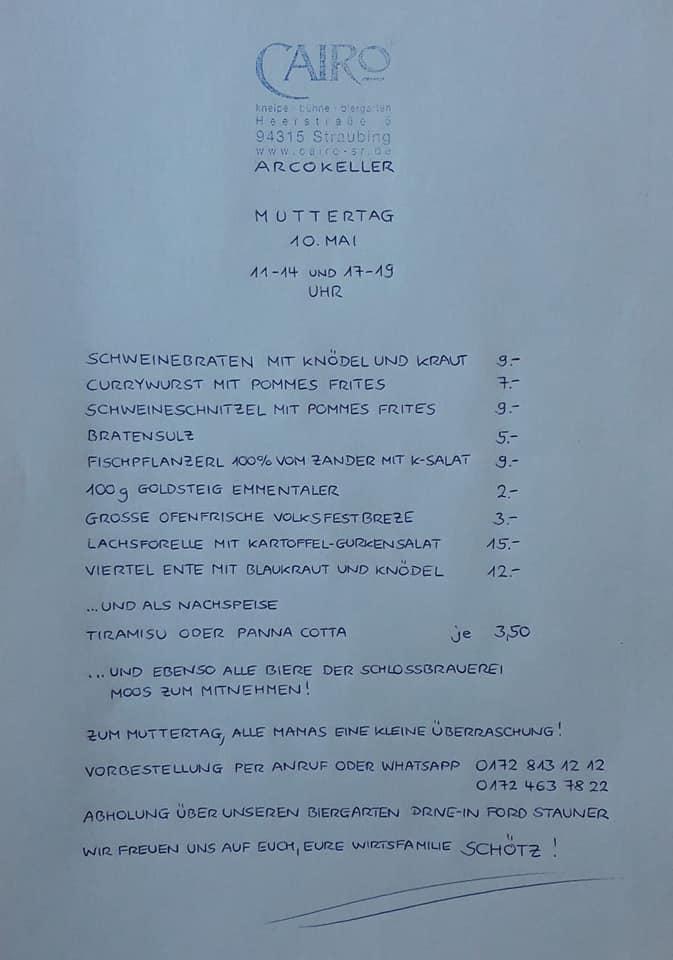 CAIRO
kneipe · bühne · biergarten
Heerstraße 5
94315 Straubing
www.cairo-sr.de
ARCOKELLER
MUTTERTAG
10. MAI
11-14 UND 17-19
UHR
SCHWEINEBRATEN MIT KNÖDEL UND KRAUT 9.-
CURRYWURST MIT POMMES FRITES 7.-
SCHWEINESCHNITZEL MIT POMMES FRITES 9.-
BRATENSULZ 5.-
FISCHPFLANZERL 100% VOM ZANDER MIT K-SALAT 9.-
100g GOLDSTEIG EMMENTALER 2.-
GROSSE OFENFRISCHE VOLKSFESTBREZE 3.-
LACHSFORELLE MIT KARTOFFEL-GURKENSALAT 15.-
VIERTEL ENTE MIT BLAUKRAUT UND KNÖDEL 12.-
...UND ALS NACHSPEISE
TIRAMISU ODER PANNA COTTA je 3,50
...UND EBENSO ALLE BIERE DER SCHLOSSBRAUEREI
MOOS ZUM MITNEHMEN!
ZUM MUTTERTAG, ALLE MAMAS EINE KLEINE ÜBERRASCHUNG!
VORBESTELLUNG PER ANRUF ODER WHATSAPP 0172 813 12 12
0172 463 78 22
ABHOLUNG ÜBER UNSEREN BIERGARTEN DRIVE-IN FORD STAUNER
WIR FREUEN UNS AUF EUCH, EURE WIRTSFAMILIE SCHÖTZ!